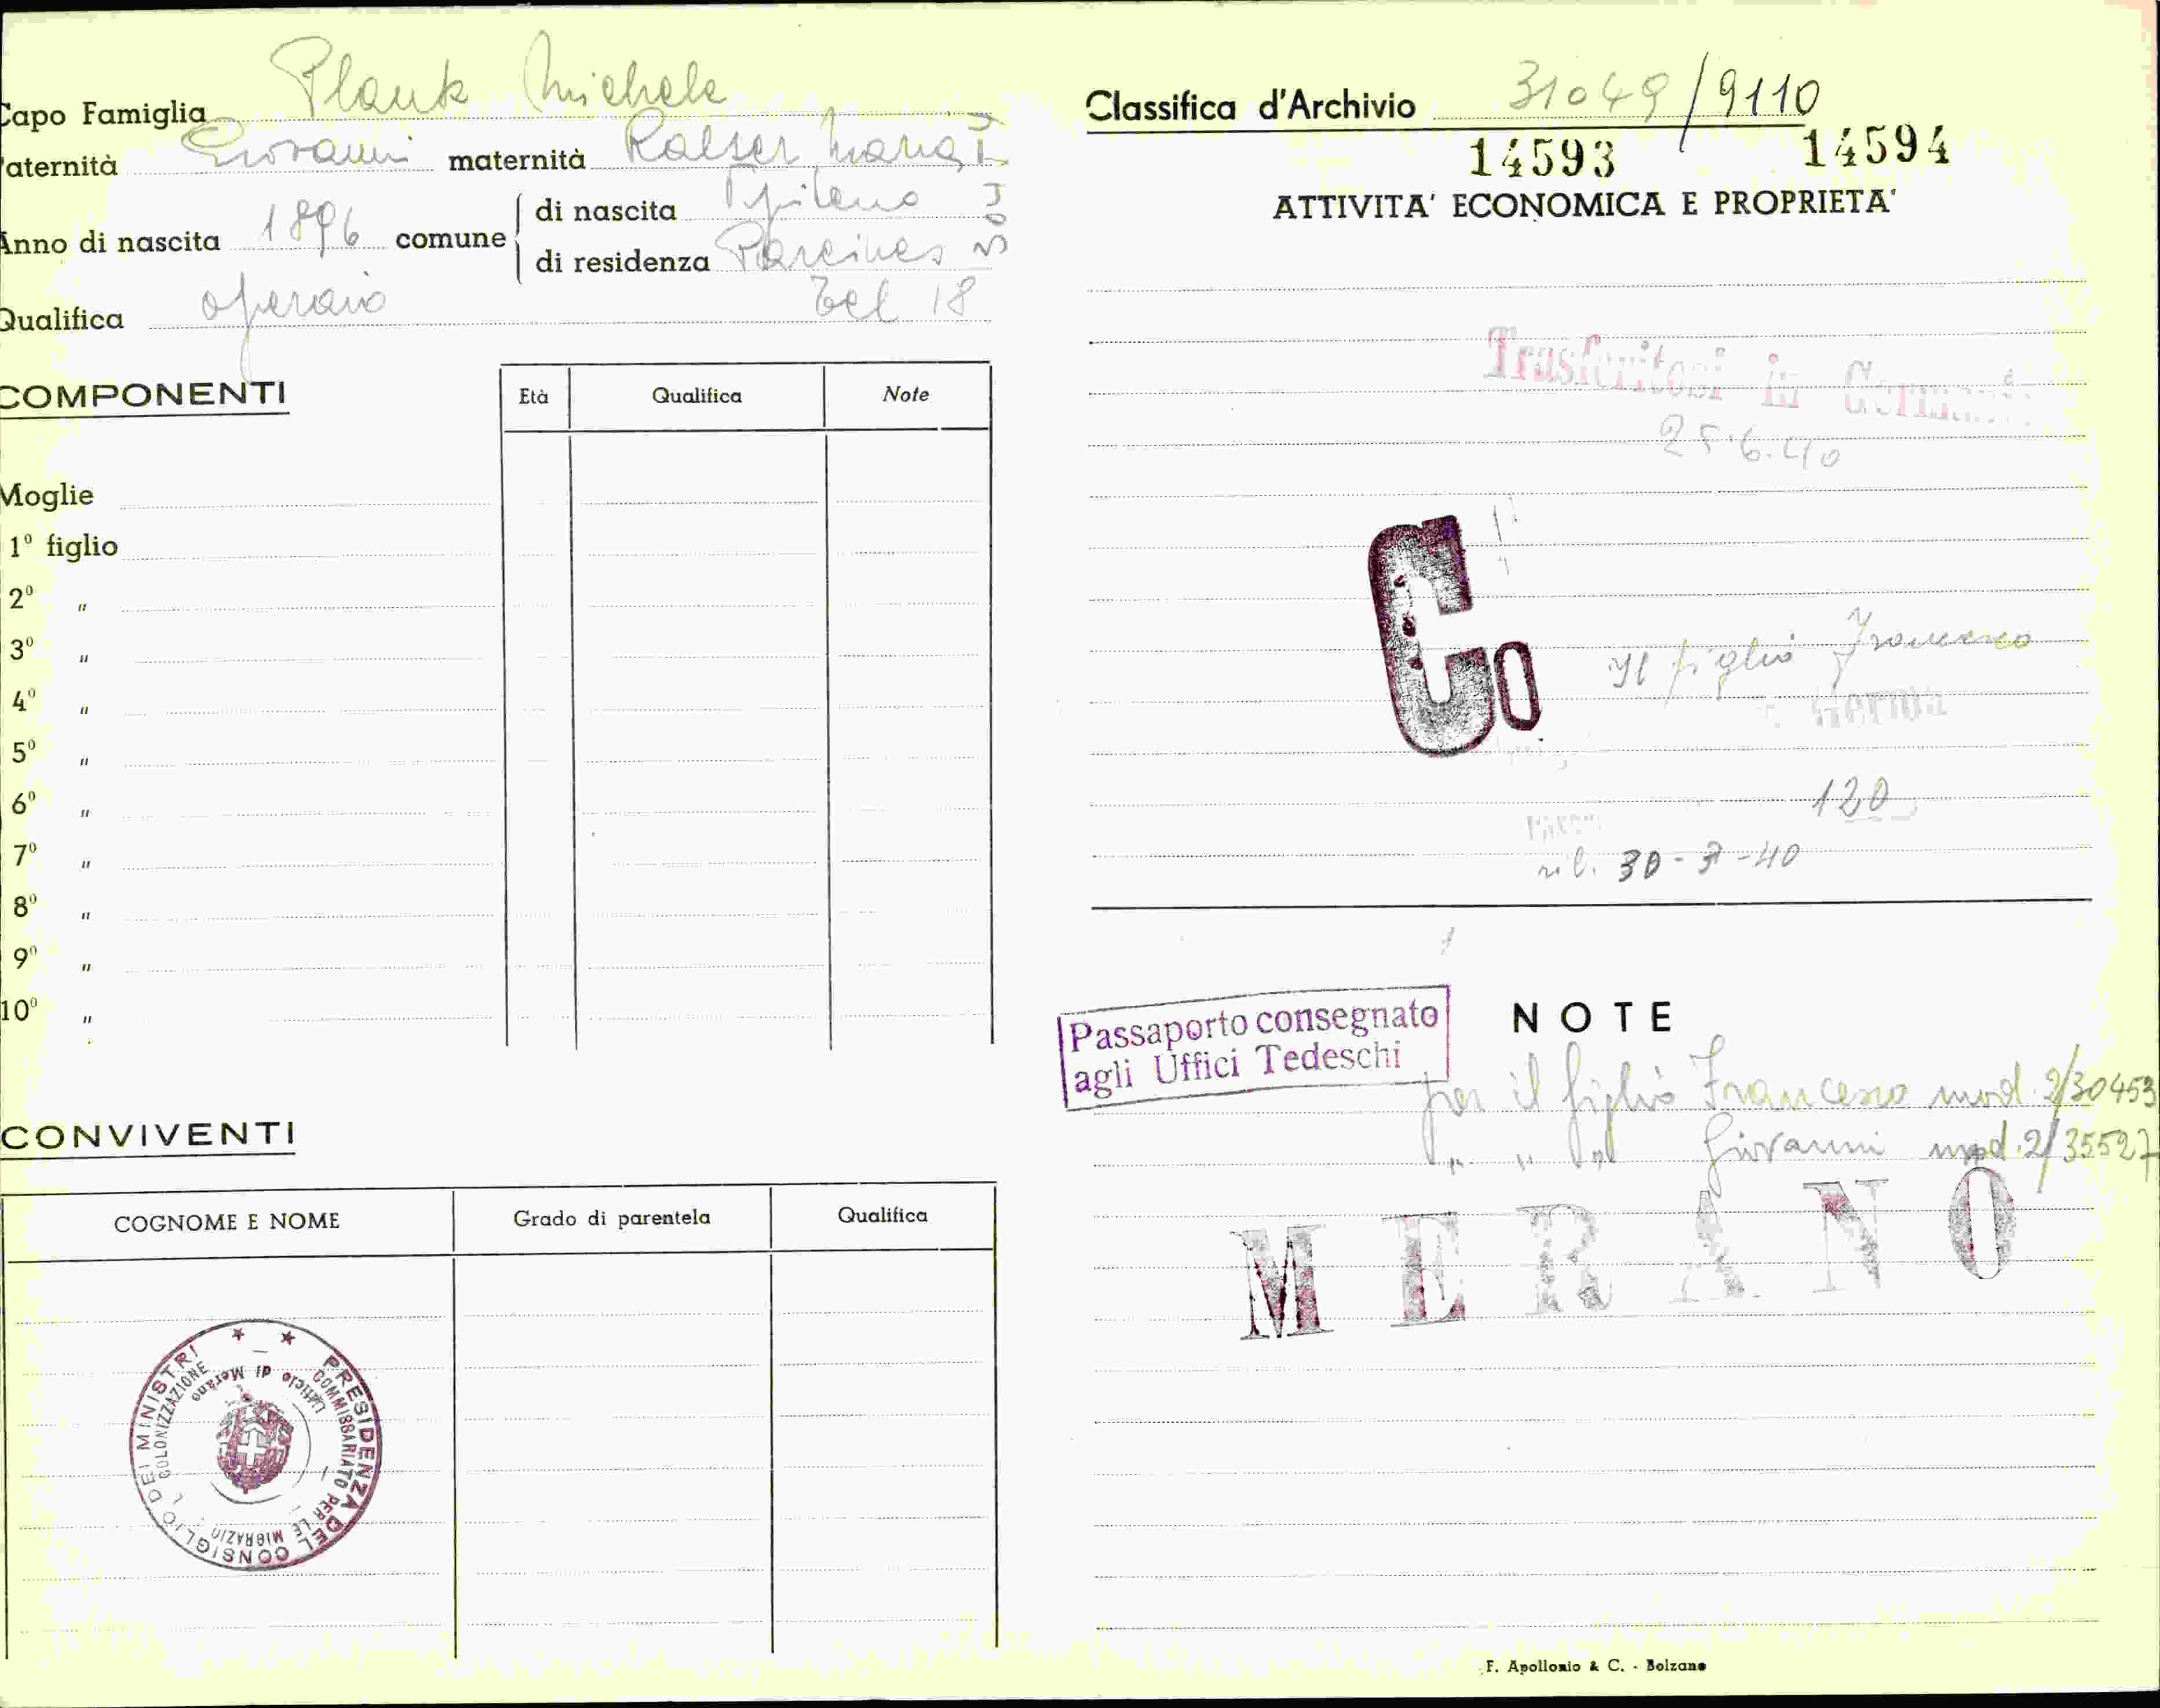 Capo Famiglia Plank Michele
aternità Giovanni maternità Kalser Maria
Anno di nascita 1896 comune di nascita Vipiteno
di residenza Parcines
Qualifica operaio Tel 18
COMPONENTI
Età Qualifica Note
Moglie
1º figlio
2º "
3º "
4º "
5º "
6º "
7º "
8º "
9º "
10º "
CONVIVENTI
COGNOME E NOME Grado di parentela Qualifica
PRESIDENZA DEL CONSIGLIO DEI MINISTRI
COMMISSARIATO PER LE MIGRAZIO COLONIZZAZIONE
Ufficio di Merano
Classifica d'Archivio 31049/9110
14593 14594
ATTIVITA' ECONOMICA E PROPRIETA'
Trasferitosi in Germania
25.6.40
Co
Il figlio Francesco
Germa
120
ril. 30-3-40
NOTE
Passaporto consegnato
agli Uffici Tedeschi
per il figlio Francesco mod. 2/30453
" " " Giovanni mod. 2/35527
MERANO
F. Apollonio & C. - Bolzano